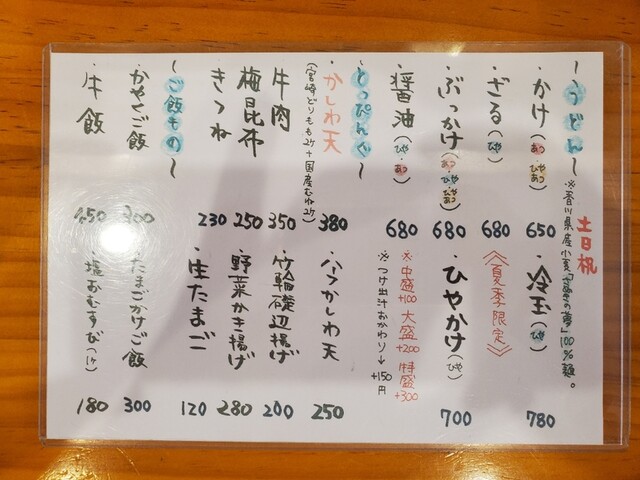 土日祝
〜うどん〜
※香川県産小麦「さぬきの夢」100%麺。
・かけ(あつ・ひやあつ) 650
・冷玉(ひや) 780
・ざる(ひや) 680
《夏季限定》
・ぶっかけ(あつ・ひや・ひやあつ) 680
・ひやかけ(ひや) 700
・醤油(ひや・あつ) 680
※中盛+100 大盛+200 特盛+300
※つけ出汁おかわり→+150円
〜とっぴんぐ〜
・かしわ天 380
(宮崎どりもも2ケ+国産むね2ケ)
・ハーフかしわ天 250
・牛肉 350
・竹輪磯辺揚げ 200
・梅昆布 250
・野菜かき揚げ 280
・きつね 230
・生たまご 120
〜ご飯もの〜
・かやくご飯 300
・たまごかけご飯 300
・牛飯 450
・塩おむすび(1ケ) 180